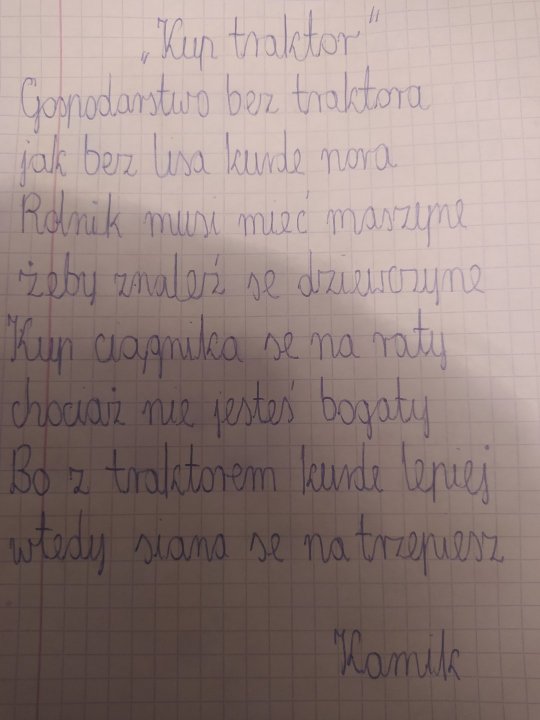 „Kup traktor"
Gospodarstwo bez traktora
jak bez lisa kurde nora
Rolnik musi mieć maszyne
żeby znaleź se dziewczyne
Kup ciągnika se na raty
chociaż nie jesteś bogaty
Bo z traktorem kurde lepiej
wtedy siana se natrzepiesz
Kamik